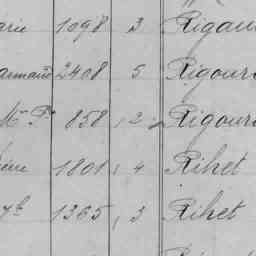 arie 1098 3 Rigau
armand 2408 5 Rigour
Mce Pre 858 2 Rigour
1801 4 Rihet
1365 3 Rihet